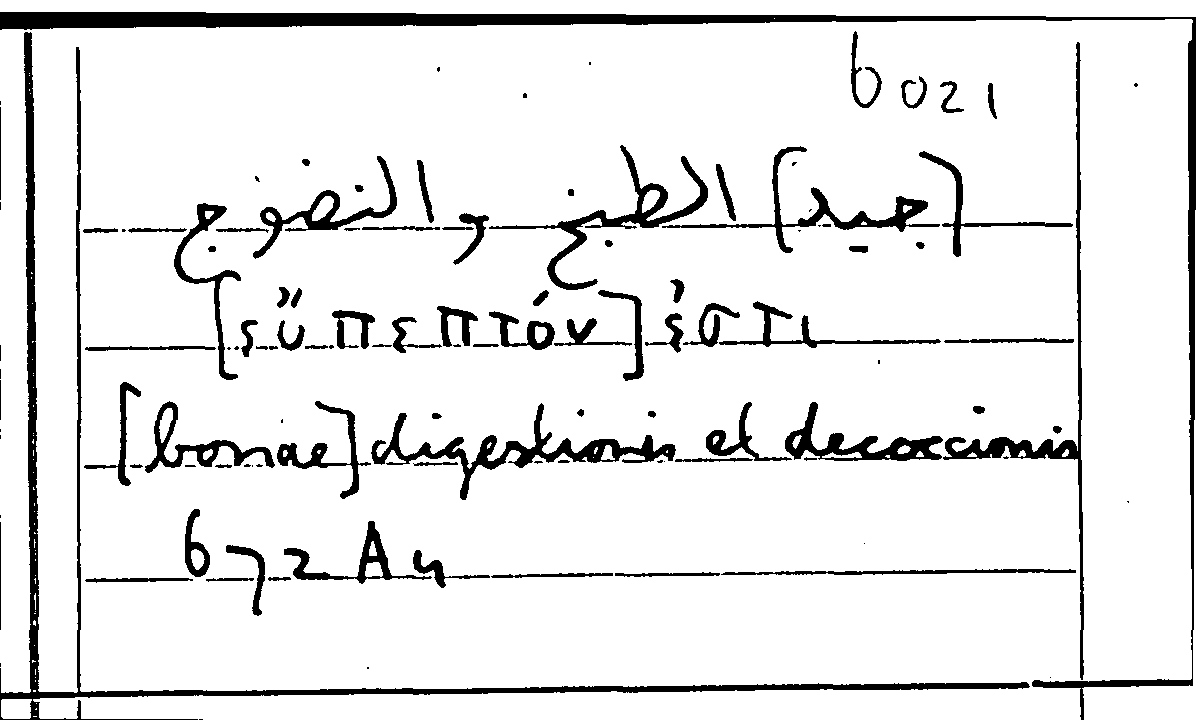 6021
[جيد] الطبخ والنضوج
[εὔπεπτόν] ἐστι
[bonae] digestionis et decoccionis
672 A4